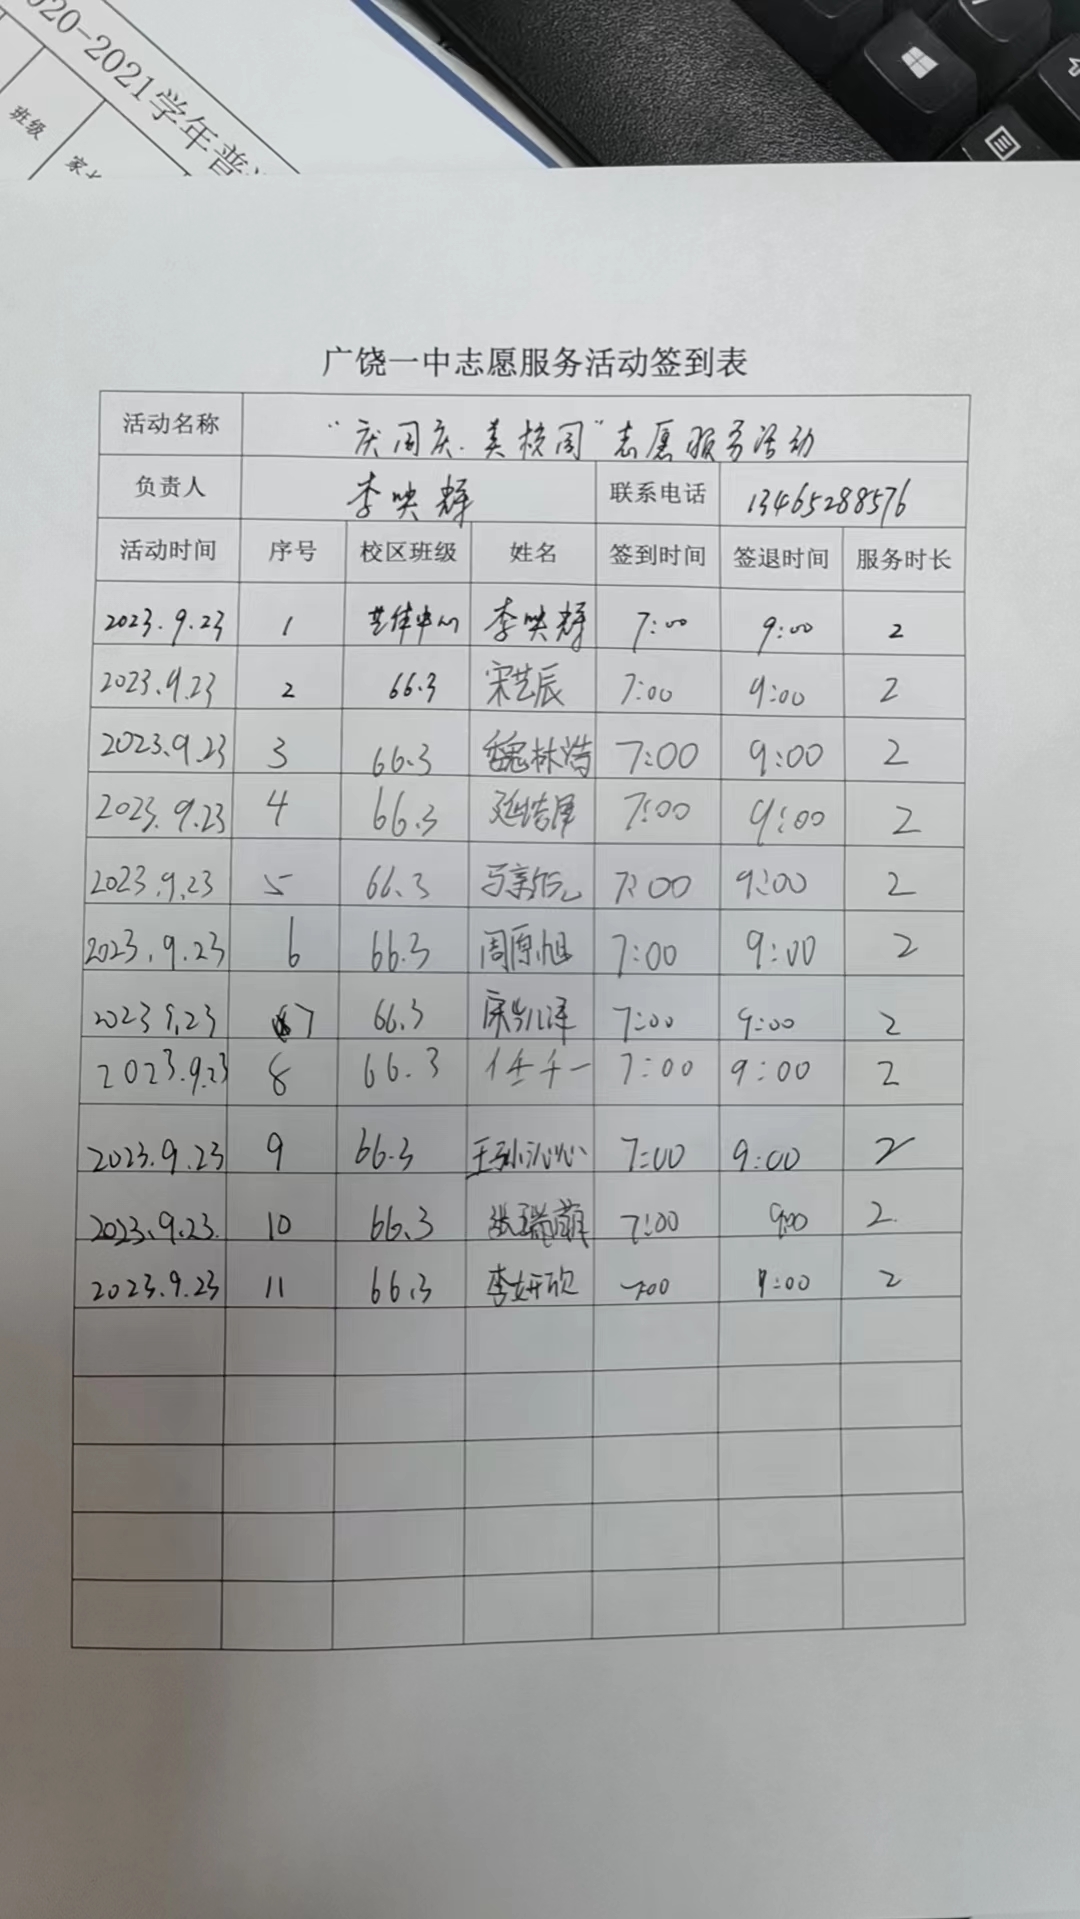 020-2021学年普
班级
家长
广饶一中志愿服务活动签到表
活动名称 “庆国庆.美校园”志愿服务活动
负责人 李映辉 联系电话 13465288576
活动时间 序号 校区班级 姓名 签到时间 签退时间 服务时长
2023.9.23 1 艺体中心 李映辉 7:00 9:00 2
2023.9.23 2 66.3 宋艺辰 7:00 9:00 2
2023.9.23 3 66.3 魏林浩 7:00 9:00 2
2023.9.23 4 66.3 7:00 9:00 2
2023.9.23 5 66.3 7:00 9:00 2
2023.9.23 6 66.3 周原旭 7:00 9:00 2
2023 9.23 7 66.3 7:00 9:00 2
2023.9.23 8 66.3 任千一 7:00 9:00 2
2023.9.23 9 66.3 王孙沁心 7:00 9:00 2
2023.9.23. 10 66.3 张瑞萌 7:00 9:00 2
2023.9.23 11 66.3 李妍欣 7:00 9:00 2